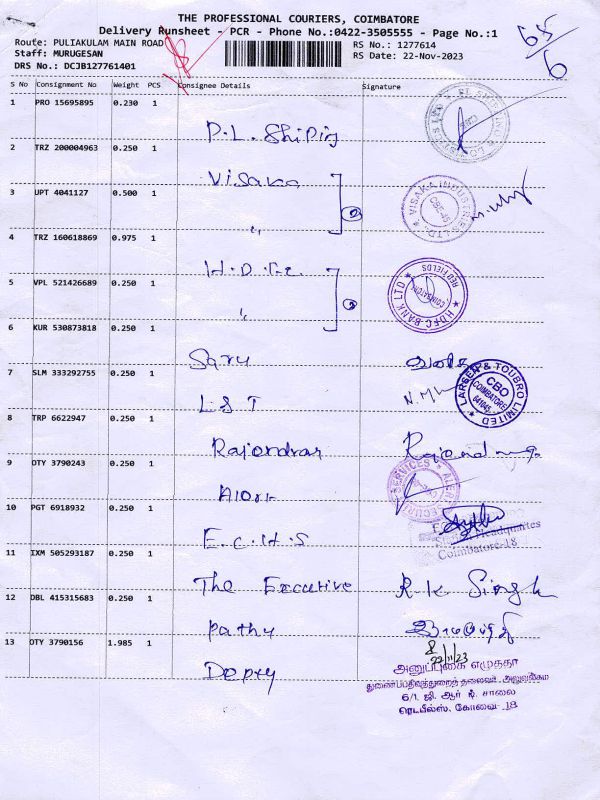 THE PROFESSIONAL COURIERS, COIMBATORE
Delivery Runsheet - PCR - Phone No.:0422-3505555 - Page No.:1
Route: PULIAKULAM MAIN ROAD
Staff: MURUGESAN
DRS No.: DCJB127761401
RS No.: 1277614
RS Date: 22-Nov-2023
65/6
S No Consignment No Weight PCS Consignee Details Signature
1 PRO 15695895 0.230 1
P.L. Shiping
2 TRZ 200004963 0.250 1
Visaka
VISAKA INDUSTRIES LTD.
CBE-45
3 UPT 4041127 0.500 1
,,
2
4 TRZ 160618869 0.975 1
H.D.F.C
HDFC BANK LTD
RED FIELDS
COIMBATORE
5 VPL 521426689 0.250 1
2
6 KUR 530873818 0.250 1
Saru
7 SLM 333292755 0.250 1
L&T
LARSEN & TOUBRO LIMITED
CBO
COIMBATORE
641045
8 TRP 6622947 0.250 1
Rajendran
9 OTY 3790243 0.250 1
Alert
10 PGT 6918932 0.250 1
E.C.H.S
Station Headquarters
Coimbatore-18
11 IXM 505293187 0.250 1
The Executive R.K Singh
12 DBL 415315683 0.250 1
Pathy
13 OTY 3790156 1.985 1
Depty
22/11/23
அனுப்புகை எழுத்தர்
துணைப்பதிவுத்துறைத் தலைவர் அலுவலகம்
6/1, ஜி. ஆர் டி. சாலை
ரெட்பீல்ஸ், கோவை-18